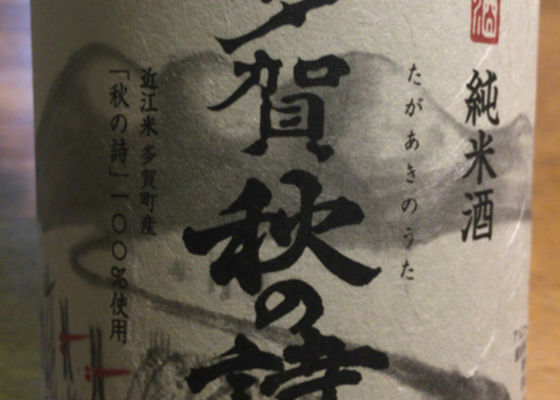 純米酒
たがあきのうた
多賀秋の詩
近江米 多賀町産
「秋の詩」一〇〇％使用